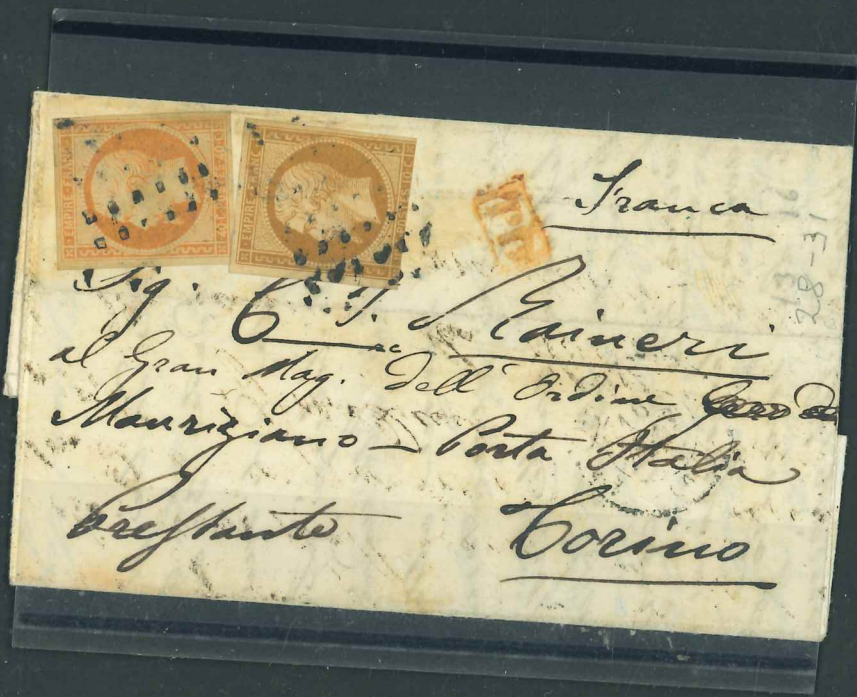 EMPIRE FRANC
EMPIRE FRANC
P.P.
Franca
13 16
28-31
Sig. C. J. Raineri
al Gran Mag. dell' Ordine
Mauriziano - Porta Italia
Prestante Torino